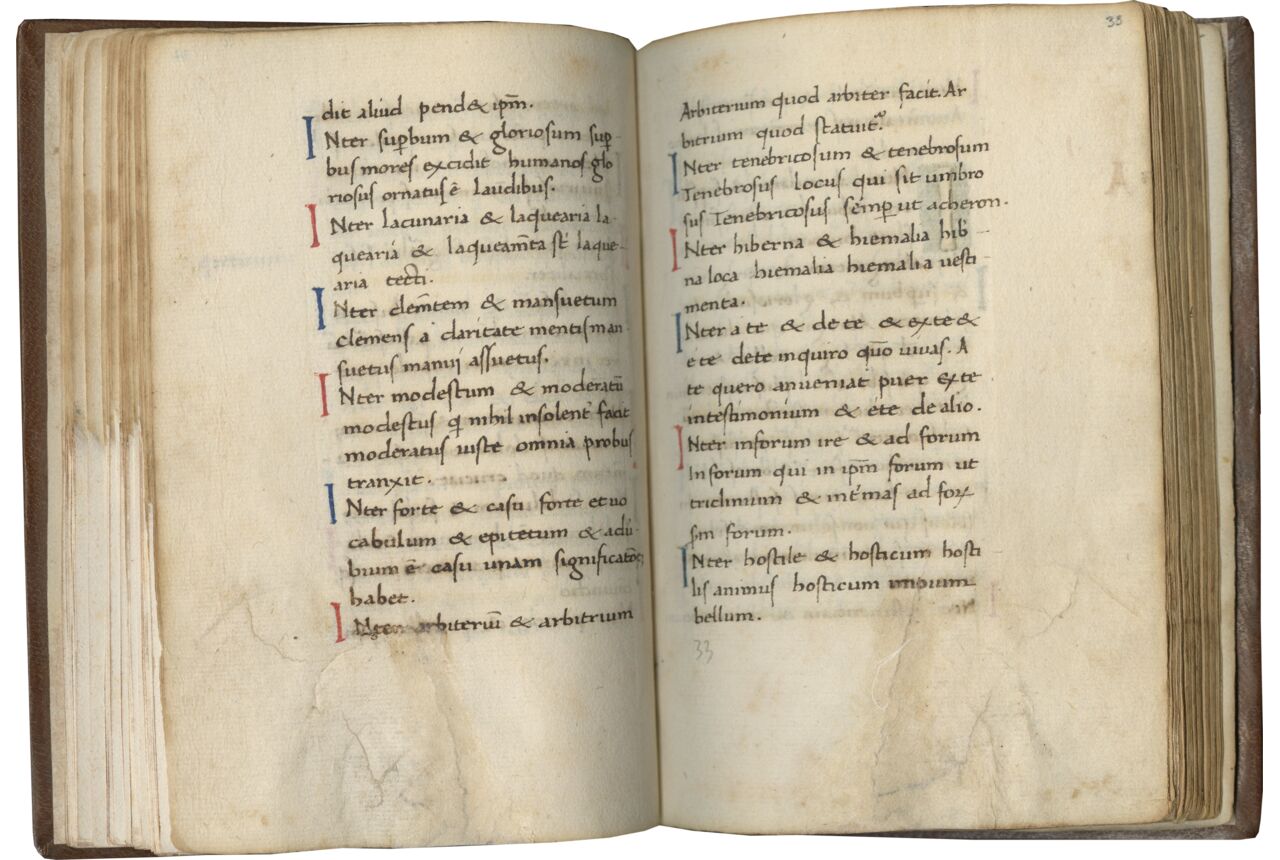 dit aliud pend& ip̄m.
INter suꝑbum & gloriosum suꝑ-
bus mores excidit humanos glo
riosus ornatus ē laudibus.
INter lacunaria & laquearia la-
quearia & laqueam̄ta st̄ laque-
aria tecti.
INter clem̄tem & mansuetum
clemens a claritate mentis man
suetus manui assuetus.
INter modestum & moderatū
modestus qi nihil insolent̄ facit
moderatus iuste omnia probus
tranxit.
INter forte & casu forte et uo
cabulum & epitetum & adu-
bium ē casu unam significatōē
habet.
INter arbiteriū & arbitrium
33
Arbiterium quod arbiter facit. Ar
bitrium quod statuit.
INter tenebricosum & tenebrosum
Tenebrosus locus qui sit umbro
sus Tenebricosus semꝑ ut acheron.
INter hiberna & hiemalia hib-
na loca hiemalia hiemalia uesti-
menta.
INter a te & de te & ex te &
e te de te inquiro quō uiuas. A
te quero an ueniat puer ex te
in testimonium & e te de alio.
INter in forum ire & ad forum
In forum qui in ip̄m forum ut
triclinium & int̄mas ad foꝝ
forum.
INter hostile & hosticum hosti
lis animus hosticum
bellum.
33